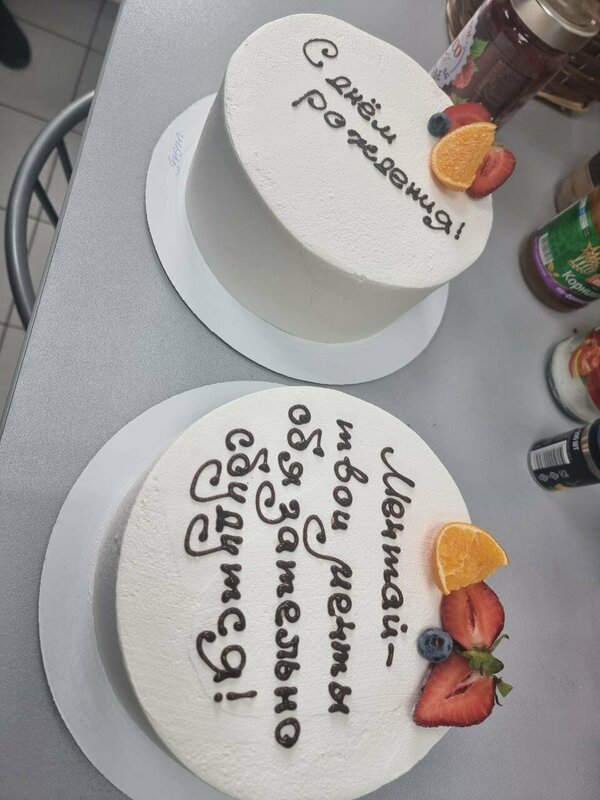 С днём
рождения!
Мечтай-
твои мечты
обязательно
сбудутся!